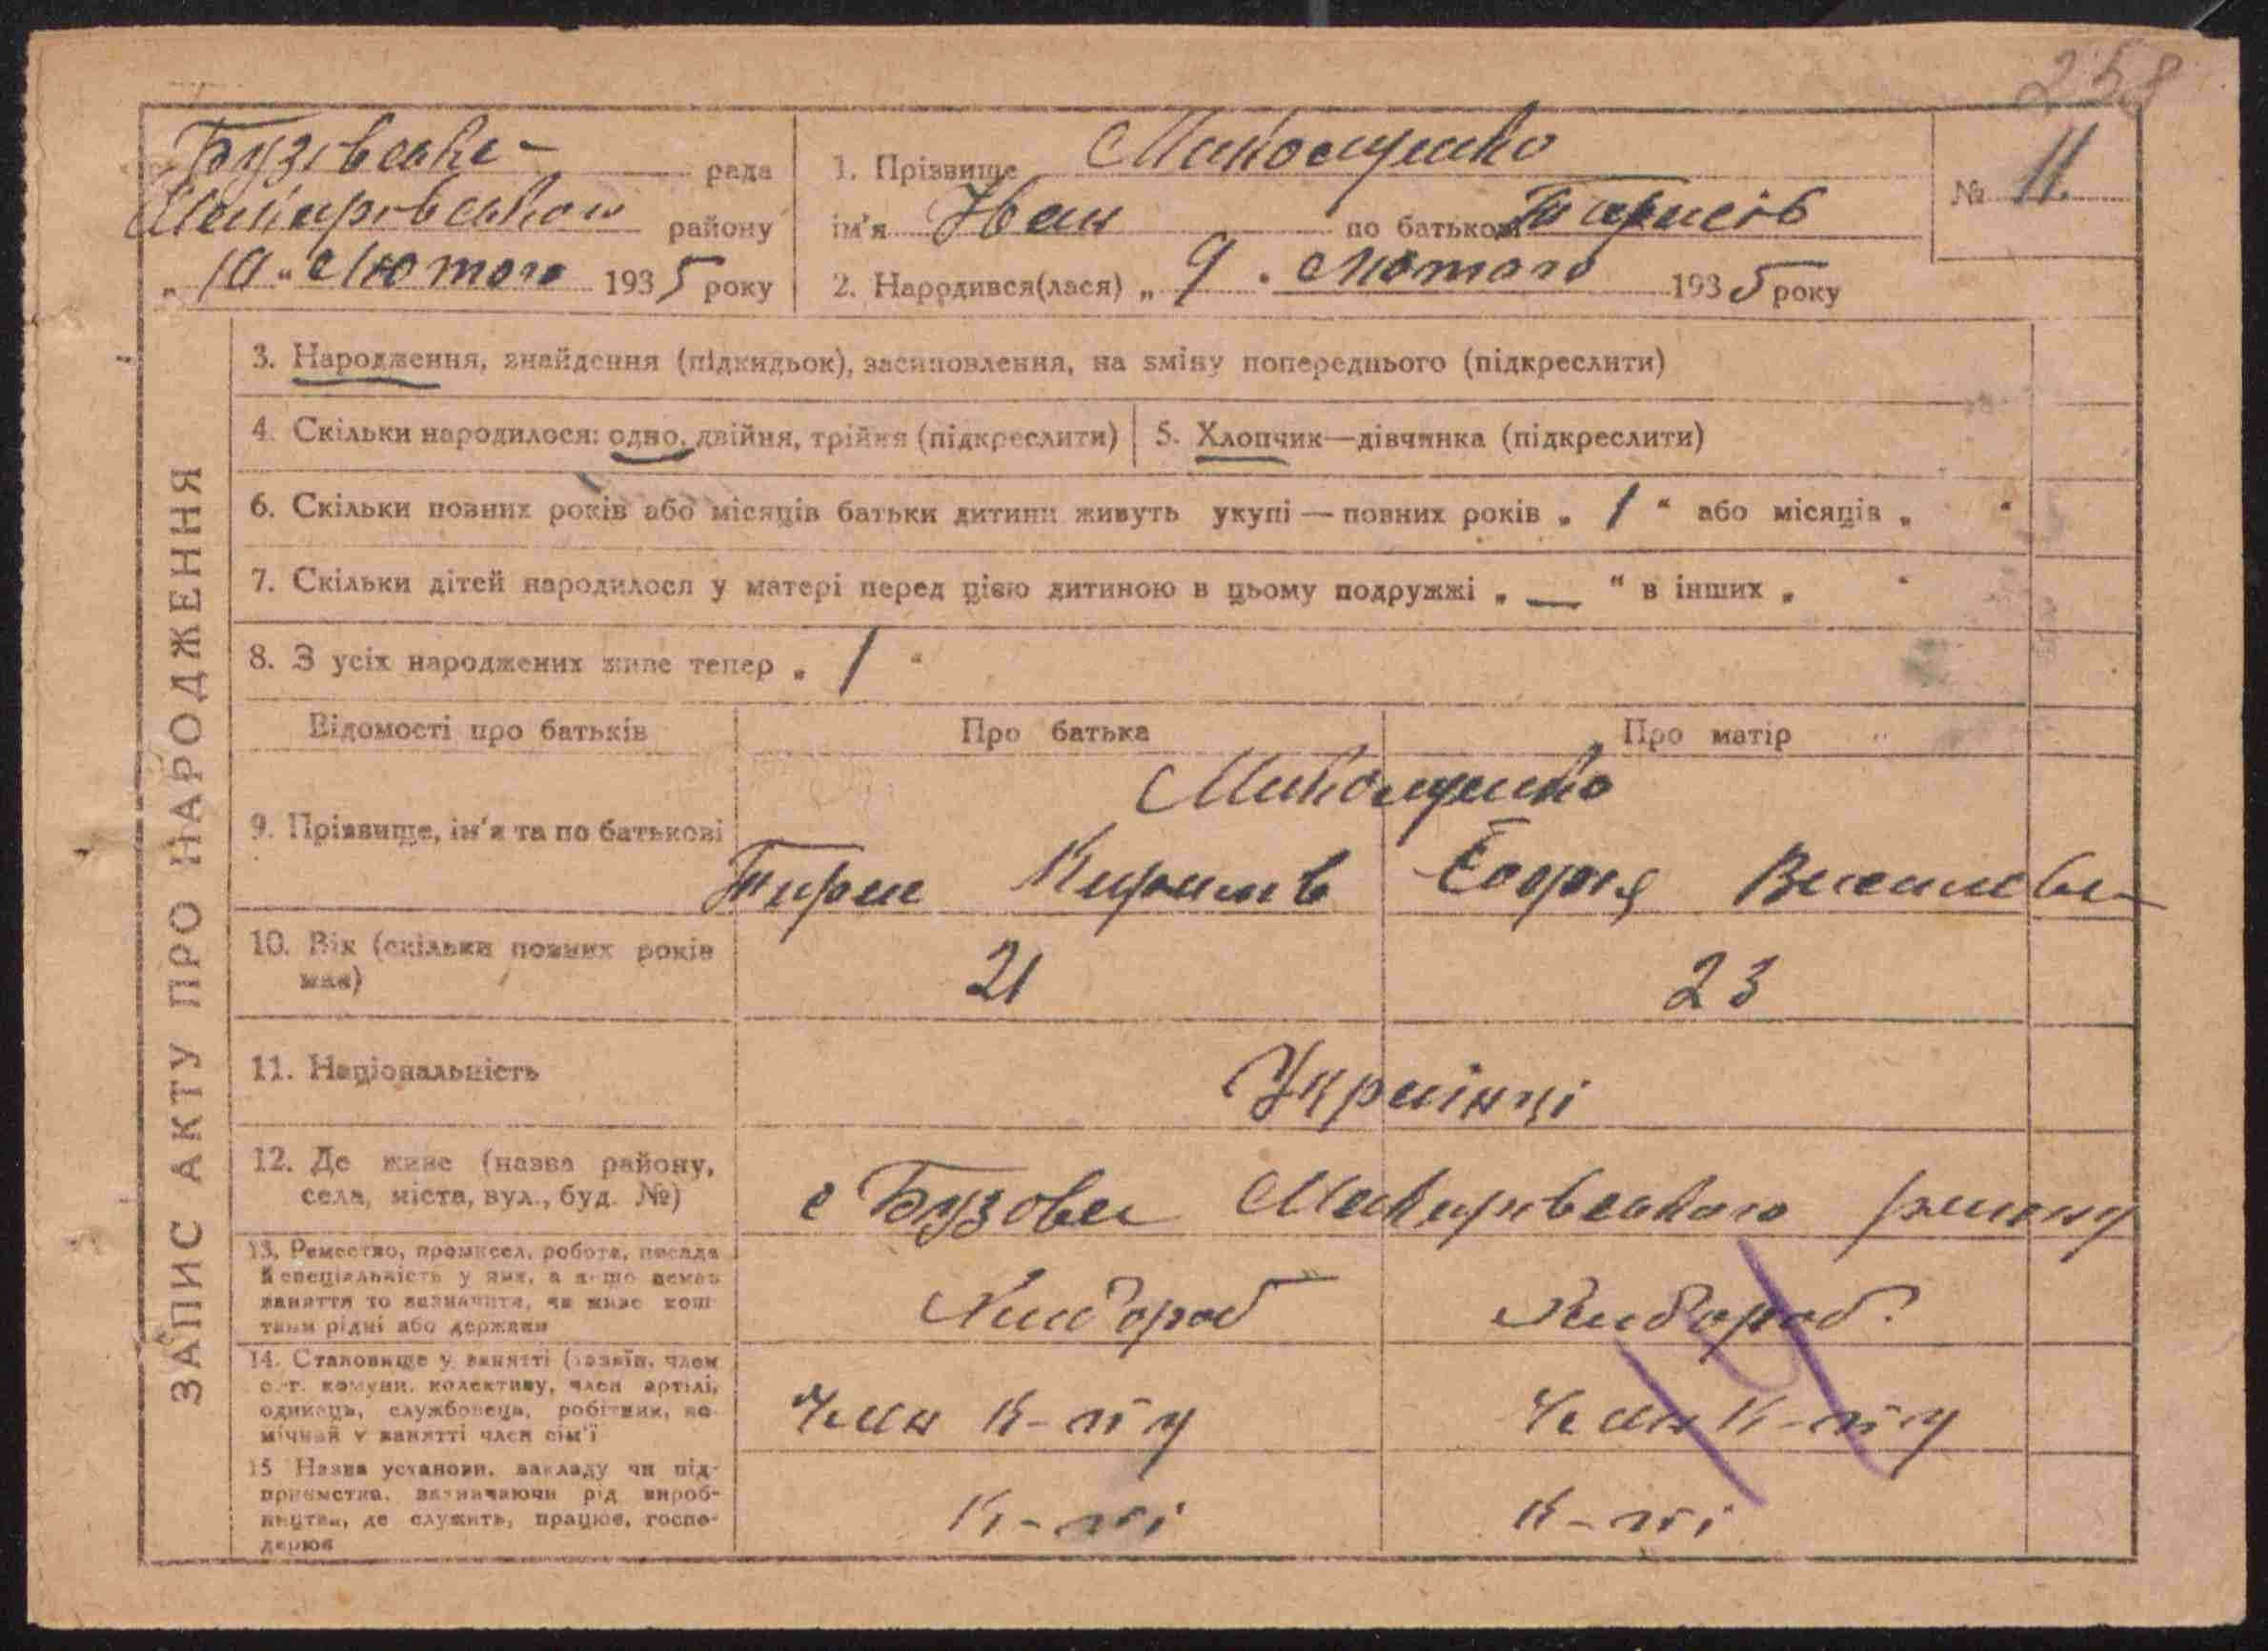 258
Бузівська рада
Макарівського району
„ 10 “ Лютого 1935 року
1. Прізвище
ім'я Іван по батькові Тарасів
2. Народився(лася) „ 9 “ Лютого 1935 року
№ 11
ЗАПИС АКТУ ПРО НАРОДЖЕННЯ
3. Народження, знайдення (підкидьок), засиновлення, на зміну попереднього (підкреслити)
4. Скільки народилося: одно, двійня, трійня (підкреслити) 5. Хлопчик—дівчинка (підкреслити)
6. Скільки повних років або місяців батьки дитини живуть укупі — повних років „ 1 “ або місяців „ “
7. Скільки дітей народилося у матері перед цією дитиною в цьому подружжі „ — “ в інших „ “
8. З усіх народжених живе тепер „ 1 “
Відомості про батьків Про батька Про матір
9. Прізвище, ім'я та по батькові
Тарас Кирилів
10. Вік (скільки повних років має) 21 23
11. Національність Українці
12. Де живе (назва району,
села, міста, вул., буд. №) с Бузова Макарівського району
13. Ремество, промисел, робота, посада
й спеціяльність у них, а якщо немає
заняття то зазначити, чи живе кош-
тами рідні або держави
Хлібороб Хлібороб.
14. Становище у занятті (хазяїн, член
с.-г. комуни, колективу, член артілі,
одинець, службовець, робітник, по-
мічний у занятті член сім'ї
Член к-пу Член к-пу
15 Назва установи, закладу чи під-
приємства, зазначаючи рід вироб-
ництва, де служить, працює, госпо-
дарює
К-пі К-пі